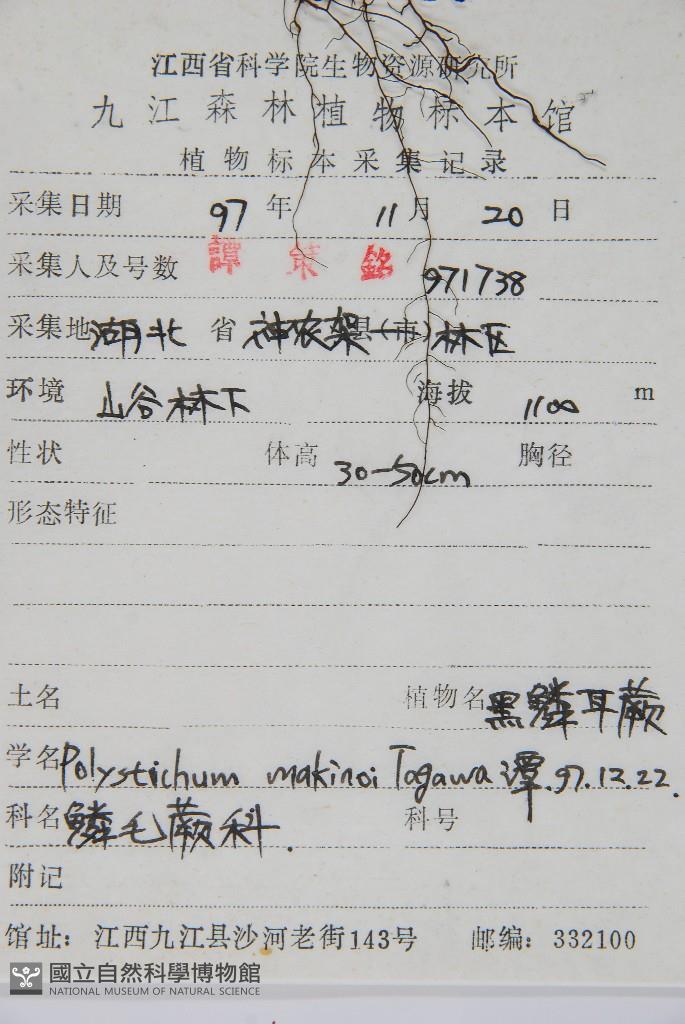 江西省科学院生物资源研究所
九江森林植物标本馆
植物标本采集记录
采集日期 97 年 11 月 20 日
采集人及号数 譚策銘 971738
采集地 湖北 省 神农架 县(市) 林区
环境 山谷林下 海拔 1100 m
性状 体高 30-50cm 胸径
形态特征
土名 植物名 黑鳞耳蕨
学名 Polystichum makinoi Tagawa 谭.97.12.22.
科名 鳞毛蕨科. 科号
附记
馆址: 江西九江县沙河老街143号 邮编: 332100
國立自然科學博物館
NATIONAL MUSEUM OF NATURAL SCIENCE